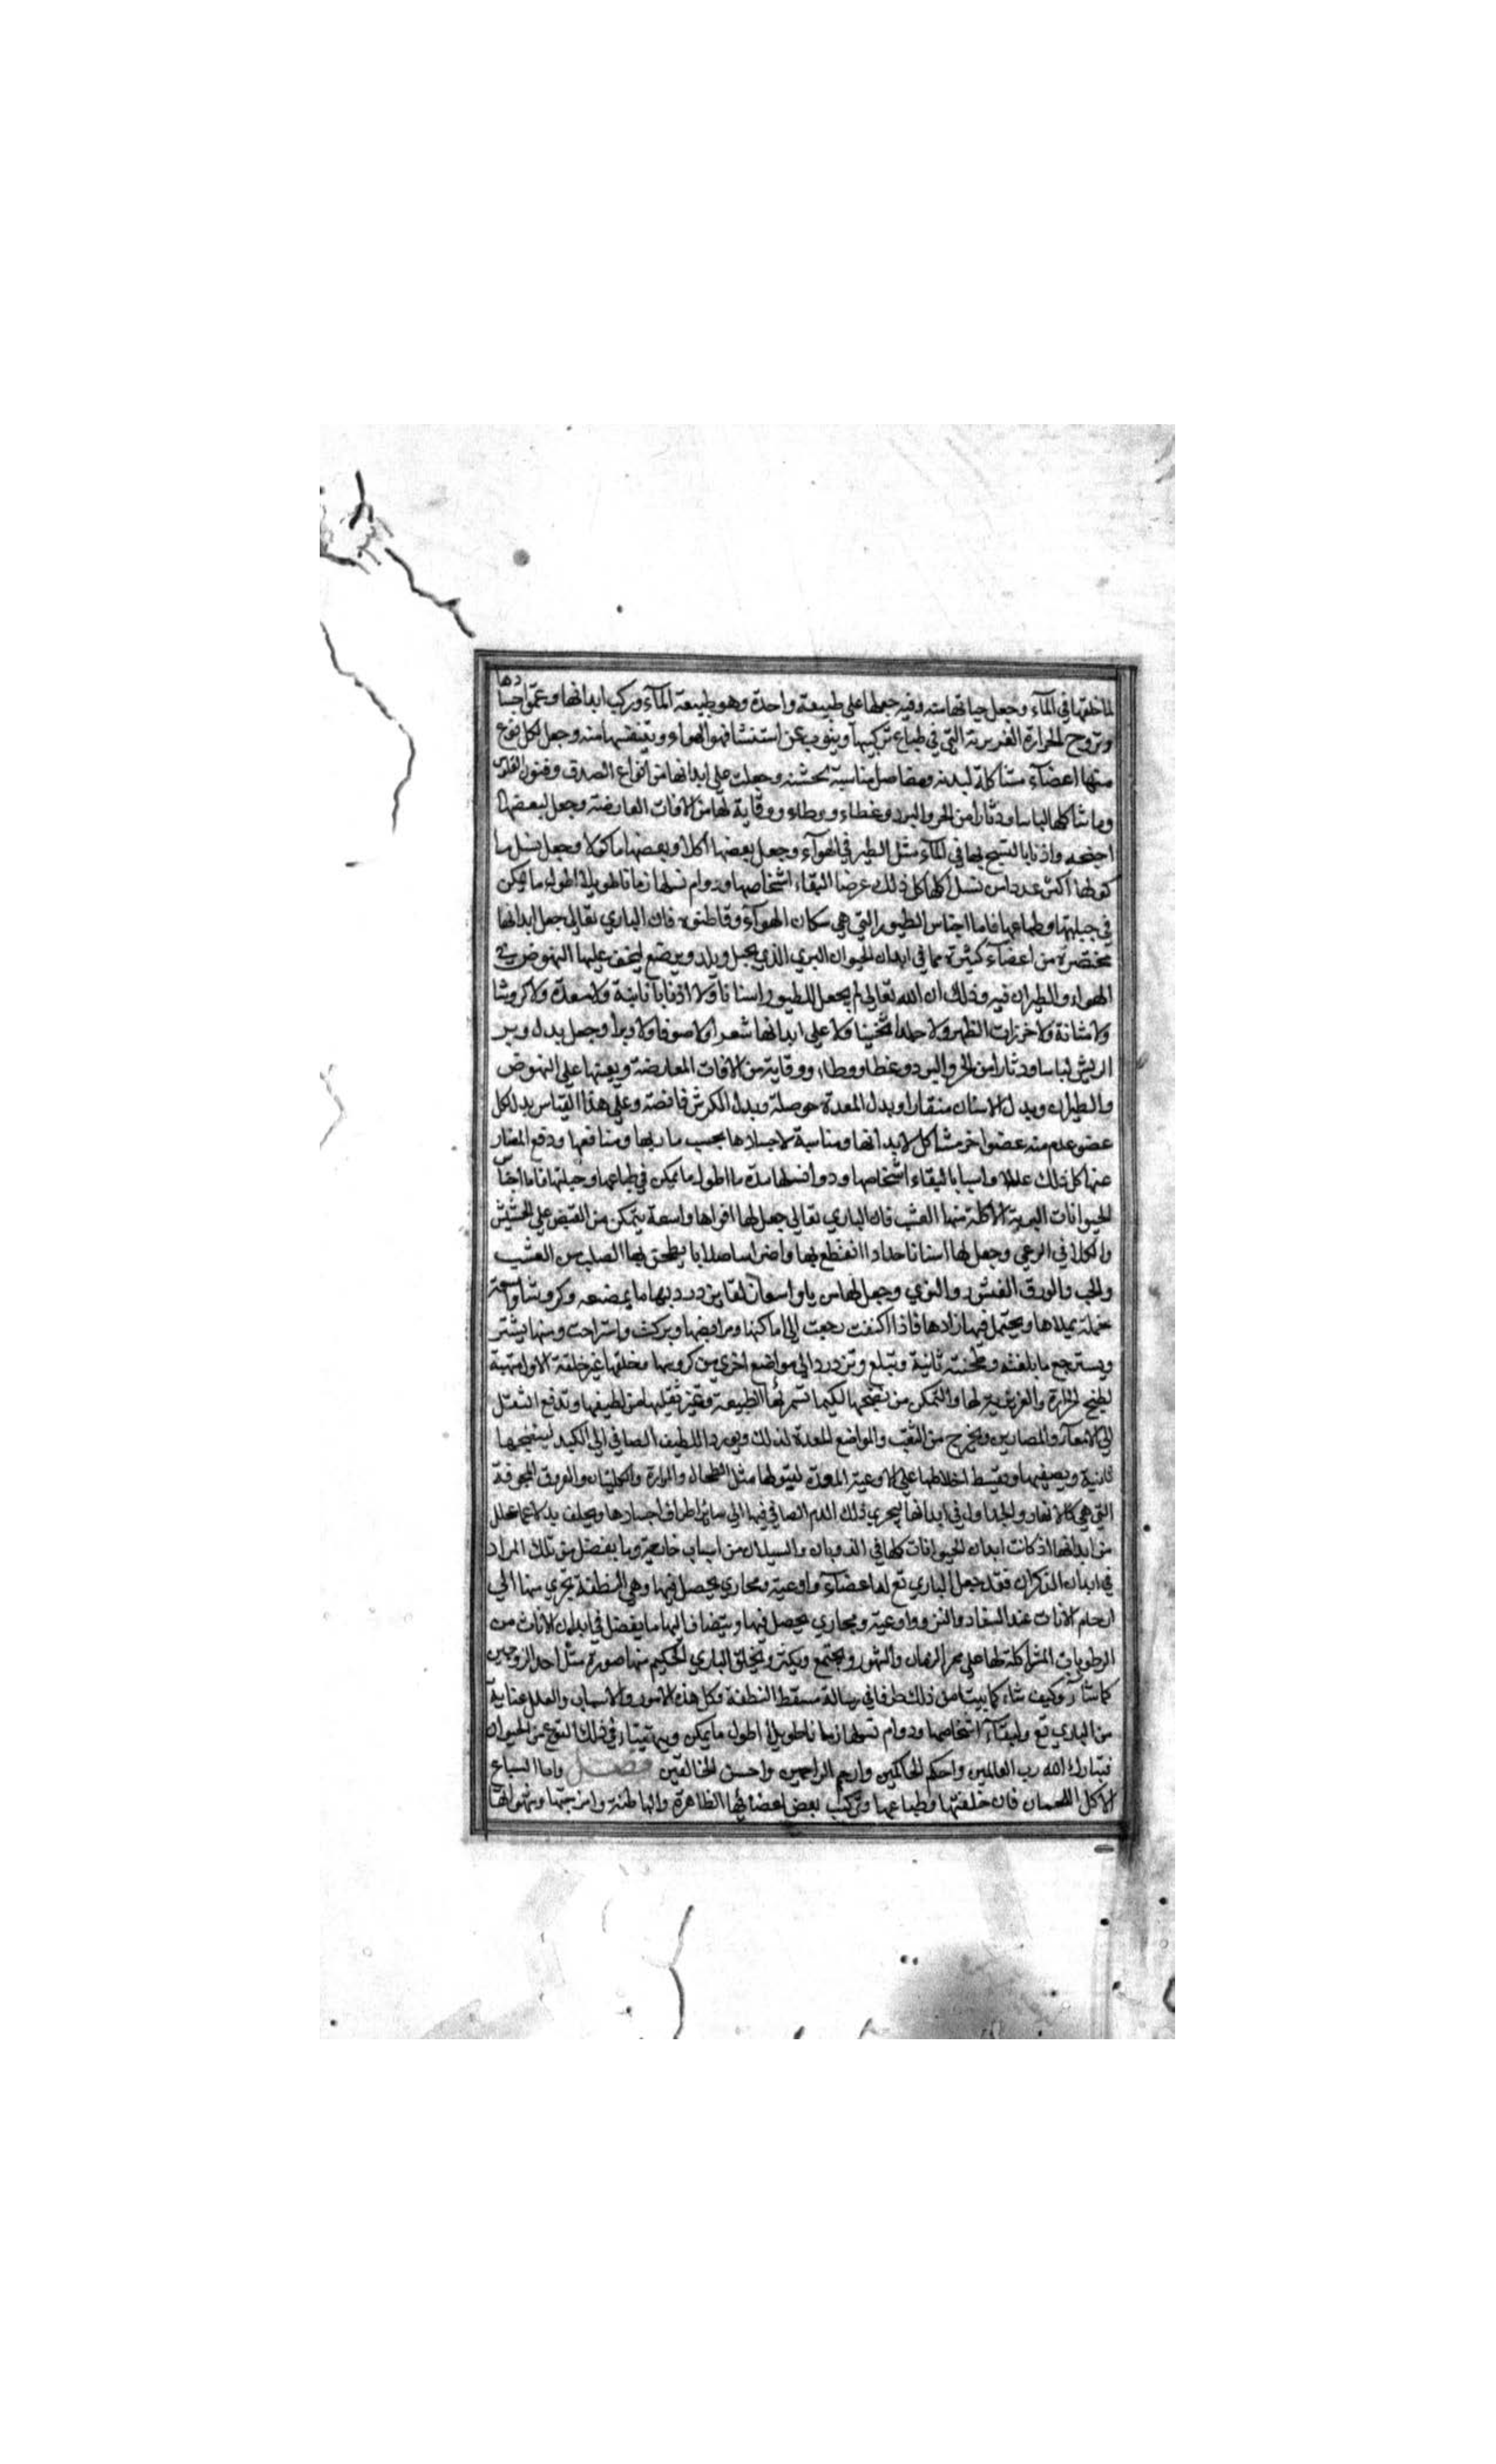 لما خلقها في المآء وجعل حياتها منه وفيه جعلها على طبيعة واحدة وهو طبيعة المآء وركب ابدانها وعمق اجسادها
وتروح الحرارة الغريزية التي في طباع تركيبها وينوب عن استنشاقهوا الهواء وتنفسها منه وجعل لكل نوع
منها اعضآء مشاكلة لبدنه ومفاصل مناسبة لجثته وجعلت على ابدانها من انواع الصدف وفنون الفلوس
وما شاكلها لباسا ودثارا من الحر والبرد وغطاء ووطاء ووقاية لها من الافات العارضة وجعل لبعضها
اجنحه واذنابا لتسبح بها في المآء مثل الطير في الهوآء وجعل بعضها آكلا وبعضها ماكولا وجعل نسل ما
كولها اكثر عددا من نسل آكلها كل ذلك غرضا لبقاء اشخاصها ودوام نسلها زمانا طويلا اطول ما يمكن
في جبلتها وطباعها فاما اجناس الطيور التي هي سكان الهوآء وقاطنوه فان الباري تعالى جعل ابدانها
مختصرة من اعضآء كثيرة مما في ابدان الحيوان البري الذي يحبل ويلد ويرضع ليخف عليها النهوض في
الهواء والطيران فيه وذلك ان الله تعالى لم يجعل للطيور اسنانا ولا اذنابا نابتة ولا معدة ولا كروشا
ولا مثانة ولا خرزات الظهر ولا جلدا ثخينا ولا على ابدانها شعرا ولا صوفا ولا وبرا وجعل بدل وبر
الريش لباسا ودثارا من الحر والبرد وغطا ووطاء ووقاية من الافات العارضة ويعينها على النهوض
والطيران وبدل الاسنان منقارا وبدل المعدة حوصلة وبدل الكرش قانصة وعلى هذا القياس بدل كل
عضو عدم منه عضوا اخر مشاكل لابدانها ومناسبة لاجسادها بحسب مآربها ومنافعها ودفع المضار
عنها كل ذلك عللا واسبابا لبقاء اشخاصها ودوا نسلها مدة ما اطول ما يمكن في طباعها وجبلتها فاما اجناس
الحيوانات البرية الاكلة منها العشب فان الباري تعالى جعل لها افواها واسعة يتمكن من القبض على الحشيش
والكلا في الرعي وجعل لها اسنانا حدادا تقطع بها واضراسا صلابا يطحن بها الصلب من العشب
والحب والورق القشور والنوي وجعل لها مريا واسعا زلقا يزدرد بها ما يمضغه وكروشا واسعة
خملة يملاها ويحتمل فيها زادها فاذا اكتفت رجعت الى اماكنها ومرابضها وبركت واستراحت ومنها يشتر
ويسترجع ما بلعته وطحنته ثانية وتبلع وتزدرد الى مواضع اخرى من كروشها مخلقها غير خلقة الاولى مهيئة
لطبخ الحرارة والغريزية لها والتمكن من نضجها لكيما تستمرئها الطبيعة وتميز ثقيلها من لطيفها وتدفع الثقل
الى الامعآء والمصارين ويخرج من الثقب والمواضع المعدة لذلك ويورد اللطيف الصافي الى الكبد لينضجها
ثانية ويصفيها ويقسط اخلاطها على الاوعية المعدة لقبولها مثل الطحال والمرارة والكليتان والعروق المجوفة
التي هي كالانهار والجداول في ابدانها ليجري ذلك الدم الصافي فيها الى ساير اطراف اجسادها ويخلف بدلا عما تحلل
من ابدانها اذ كانت ابدان الحيوانات كلها في الذوبان والسيلان من اسباب خارجة وما يفضل من تلك المواد
في ابدان الذكران فقد جعل الباري تع لها اعضآء واوعية ومجاري يحصل فيها وهي النطفة تجري منها الى
ارحام الاناث عند السفاد والنزو واوعية ومجاري يحصل فيها ويتضاف اليها ما يفضل في ابدان الاناث من
الرطوبات المشاكلة لها على ممر الزمان والشهور ويجتمع ويكثر ويخلق الباري الحكيم منها صورة مثل احد الزوجين
كما شآء وكيف شاء كما بينا من ذلك طرفا في رسالة مسقط النطفة وكل هذه الامور والاسباب والعلل عناية
من الباري تع ولبقآء اشخاصها ودوام نسلها زمانا طويلا اطول ما يمكن ويتهيأ في ذلك النوع من الحيوان
فتبارك الله رب العالمين واحكم الحاكمين وارحم الراحمين واحسن الخالقين فصل واما السباع
الاكل اللحمان فان خلقتها وطباعها وتركيب بعض اعضائها الظاهرة والباطنة وامزجتها وشهواتها